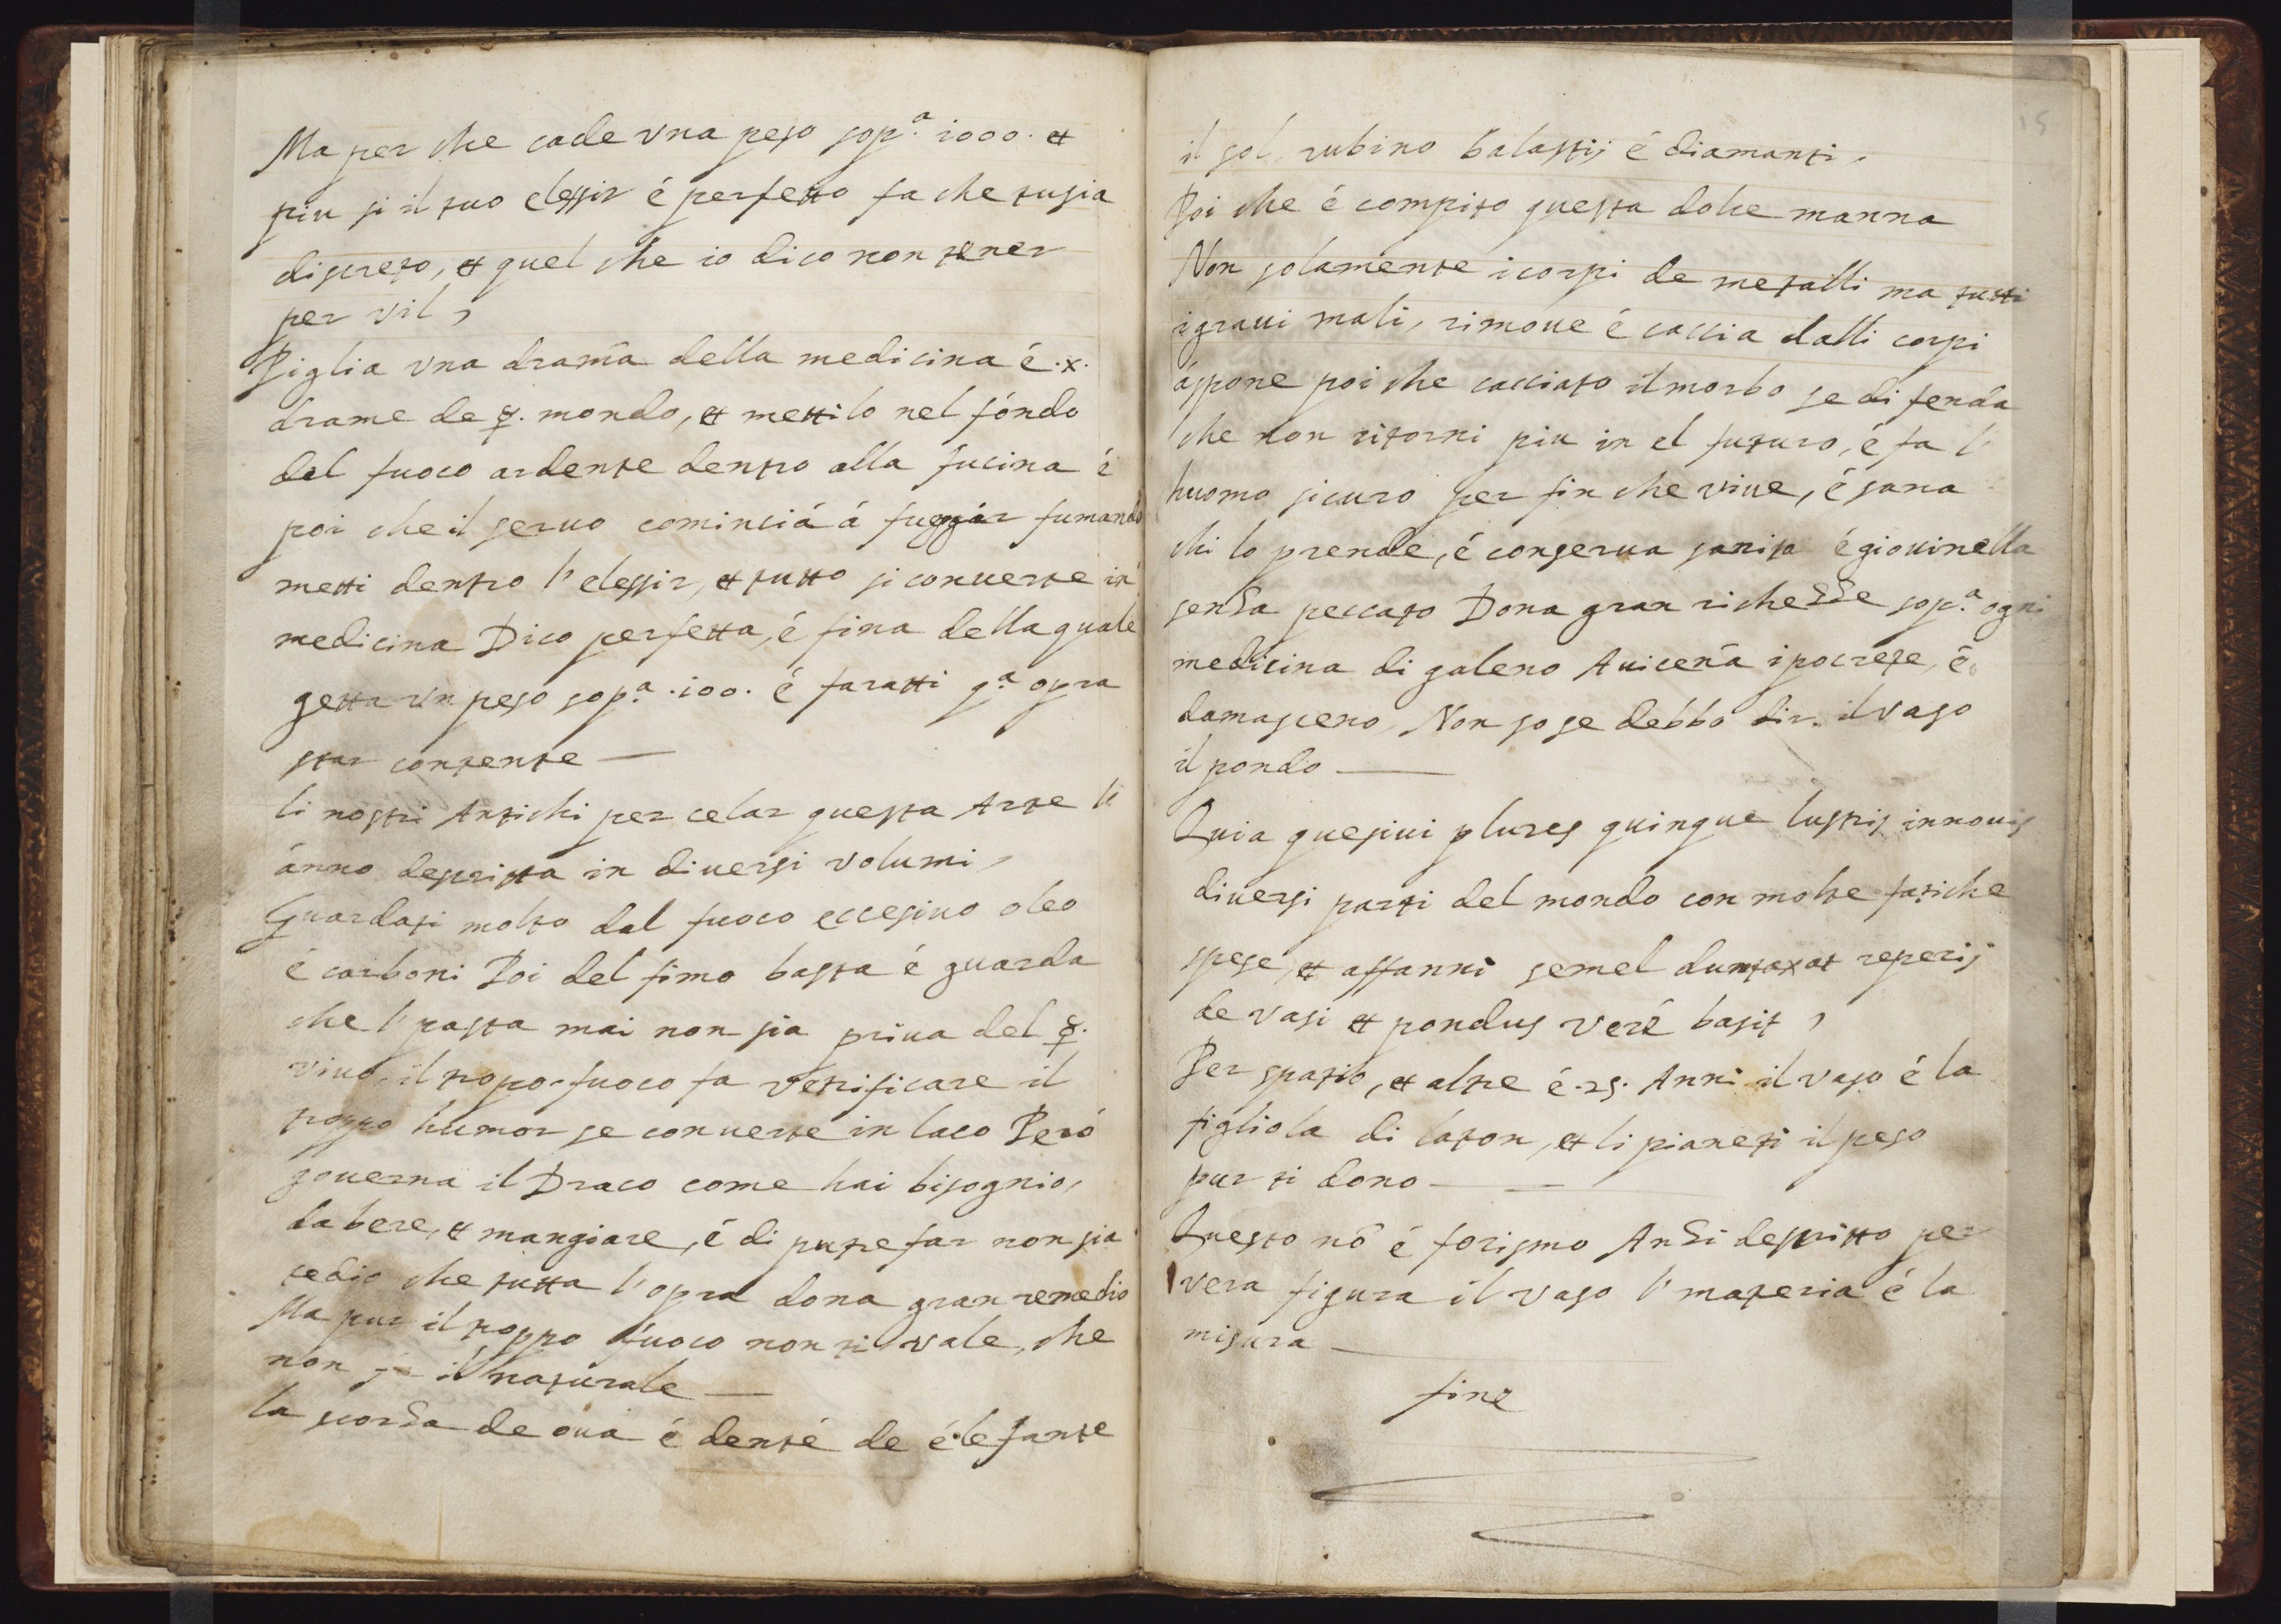 Ma per che cade vna peso sop.ª 1000. et
piu si il tuo elessir é perfetto fa che tu sia
discreto, et quel che io dico non tener
per vil,
Piglia vna drama della medicina é .x.
drame de ☿. mondo, et mettilo nel fóndo
del fuoco ardente dentro alla fucina é
poi che il seruo cominciá á fuggir fumando
metti dentro l' elessir, et tutto si conuerte in
medicina Dico perfetta, é fina della quale
getta un peso sop.ª .100. é faratti q.ª opra
star contente
li nostri Antichi per celar questa Arte l'
ánno descritta in diuersi volumi,
Guardati molto dal fuoco eccesiuo oleo
é carboni Poi del fimo basta é guarda
che l' pasta mai non sia priua del ☿.
viuo, il tropo fuoco fa vetrificare il
troppo humor se conuerte in laco Peró
gouerna il Draco come hai bisognio,
da bere, et mangiare, é di putrefar non sia
tedio che tutta l' opra dona gran remedio
Ma pur il troppo fuoco non ti vale, che
non il naturale
la scorza de oua é dente de élefante
15
il sol, rubino balastij é diamanti,
Poi che é compito questa dolce manna
Non solamente i corpi de metalli ma tutti
i graui mali, rimoue é caccia dalli corpi
áspone poi che cacciato il morbo se difenda
che non ritorni piu in el futuro, é fa l'
huomo sicuro per fin che viue, é sana
chi lo prende, é conserua sanita é giouinella
senza peccato Dona gran richezze sop.ª ogni
medicina di galeno Auicena ipocrate, é
damasceno, Non so se debbo dir il vaso
il pondo
Quia quesiui plures quinque lustris innouis
diuersi parti del mondo con molte fatiche
spese, et affanni semel duntaxat reperij
de vasi et pondus veré basis,
Per spatio, et altre é .25. Anni il vaso é la
figliola di laton, et li pianeti il peso
pur ti dono
Questo nō é forismo Anzi descritto per
vera figura il vaso l' materia é la
misura
fine